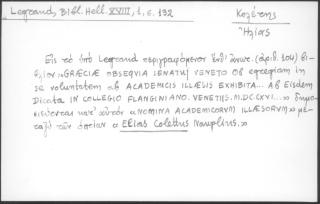 Legrand, Bibl. Hell. XVIII, 1, σ. 132
Κολέτης
Ἠλίας
Εἰς τὸ ὑπὸ Legrand περιγραφόμενον ἐνθ' ἀνωτ. (ἀριθ. 104) βι-
βλίον «GRÆCIÆ OBSEQVIA SENATVI VENETO OB egregiam in
se voluntatem ab ACADEMICIS ILLÆIS EXHIBITA... AB EISDEM
Dicata IN COLLEGIO FLANGINIANO. VENETIIS. M.DC.CXVI...» δημο-
σιεύονται κατ' αὐτὸν «NOMINA ACADEMICORVM ILLÆSORVM» με-
ταξὺ τῶν ὁποίων ὁ Elias Colettus Nauplius.»